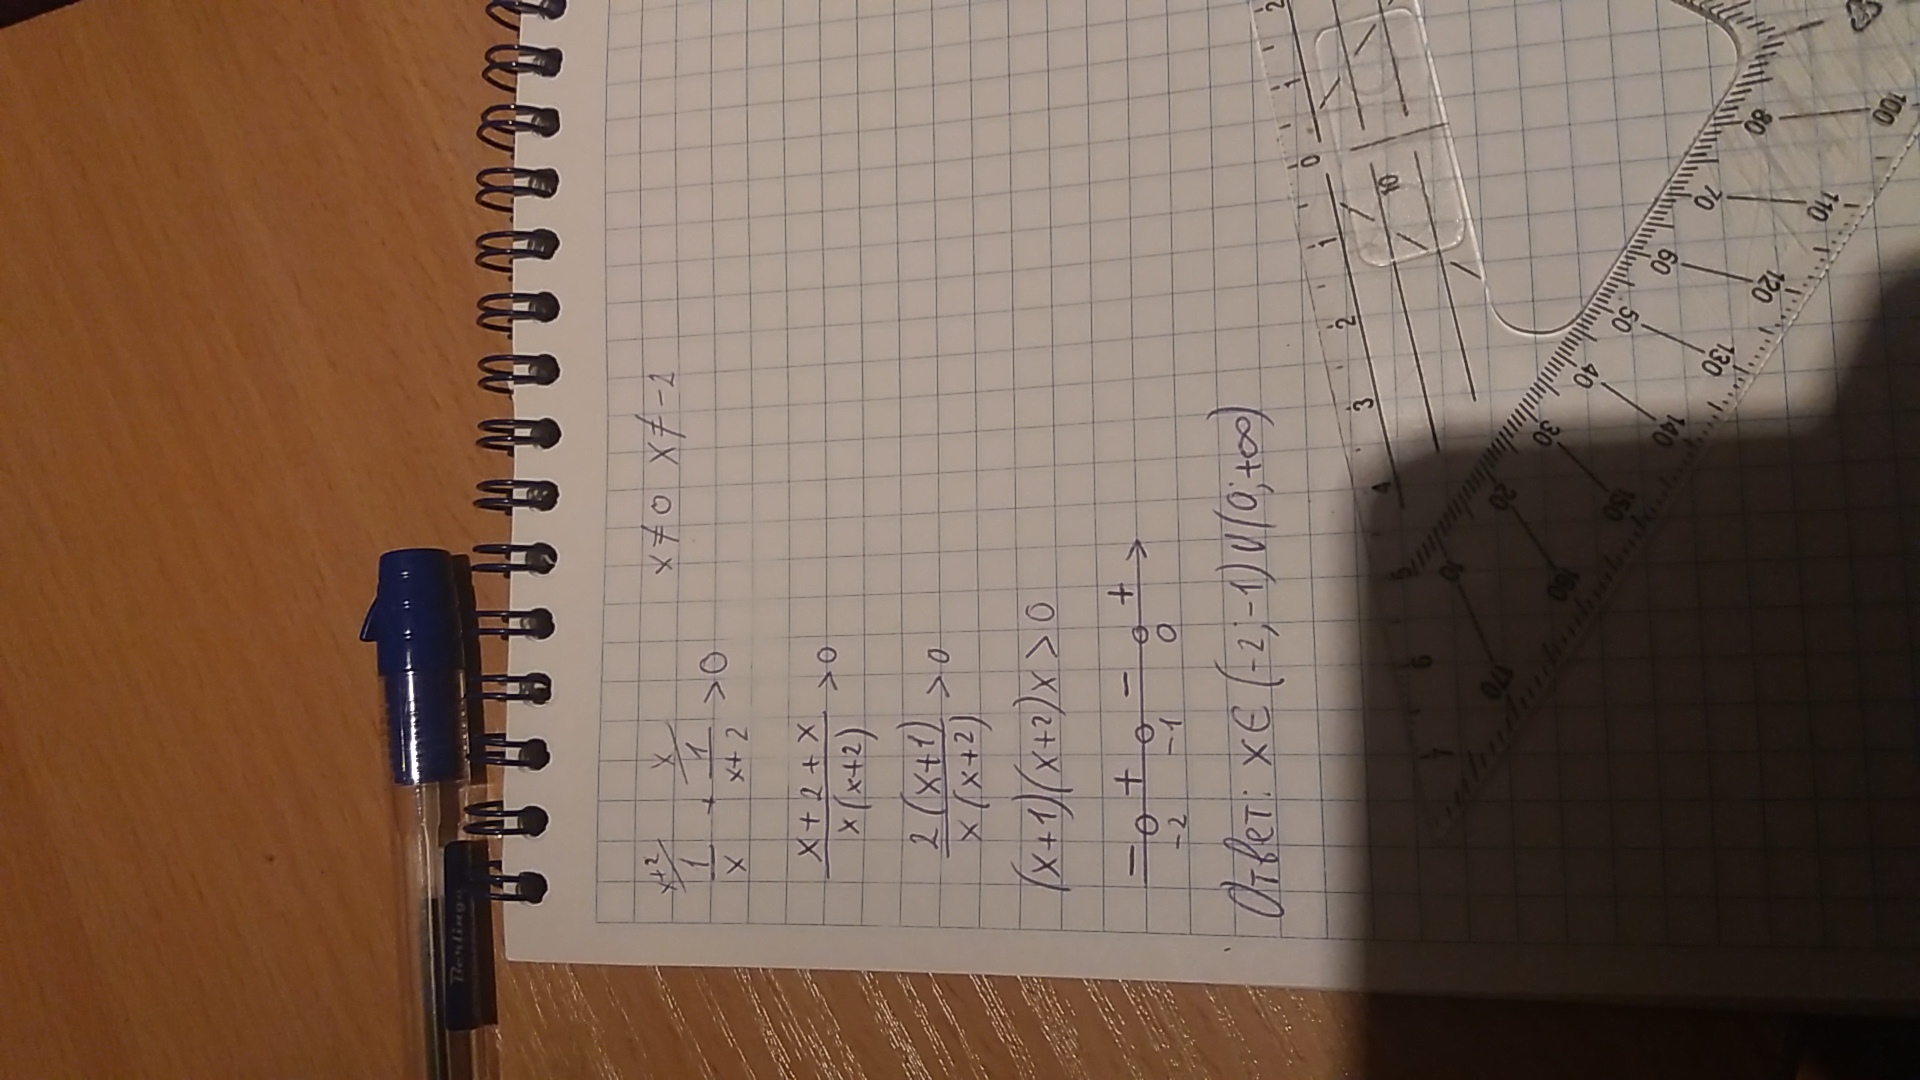 x+2/ x/ x≠0 x≠-2
1/x + 1/x+2 >0
x+2+x/x(x+2) >0
2(x+1)/x(x+2) >0
(x+1)(x+2)x>0
- + - +
-2 -1 0
Ответ: x∈(-2;-1)∪(0;+∞)
Berlingo
2 1 0 1 2 3 4 5 6 7
10
10 20 30 40 50 60 70 80
170 160 150 140 130 120 110 100